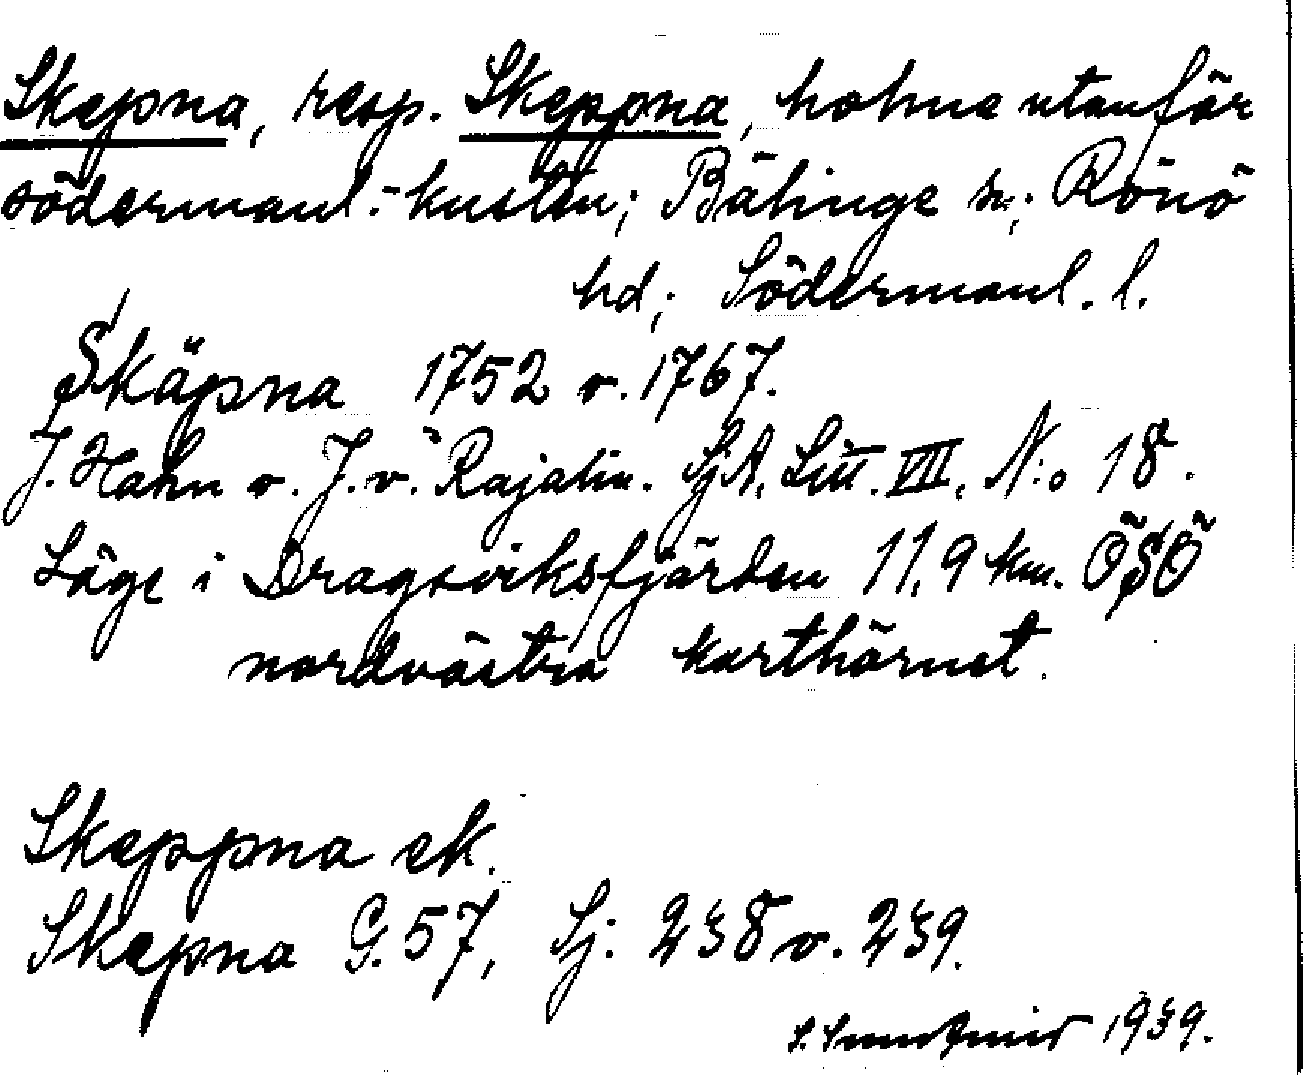 Skepna, resp. Skeppna, holme utanför
södermanl.-kusten; Bälinge sn; Rönö
hd; Södermanl. l.
Skäpna 1752 o. 1767.
J. Hahn o. J. v. Rajalin. SjA. Litt. VII. N:o 18.
Läge i Dragsviksfjärden 11,9 km. ÖSÖ
nordvästra karthörnet.
Skeppna ek.
Skepna G. 57, Sj. 238 o. 239.
1939.